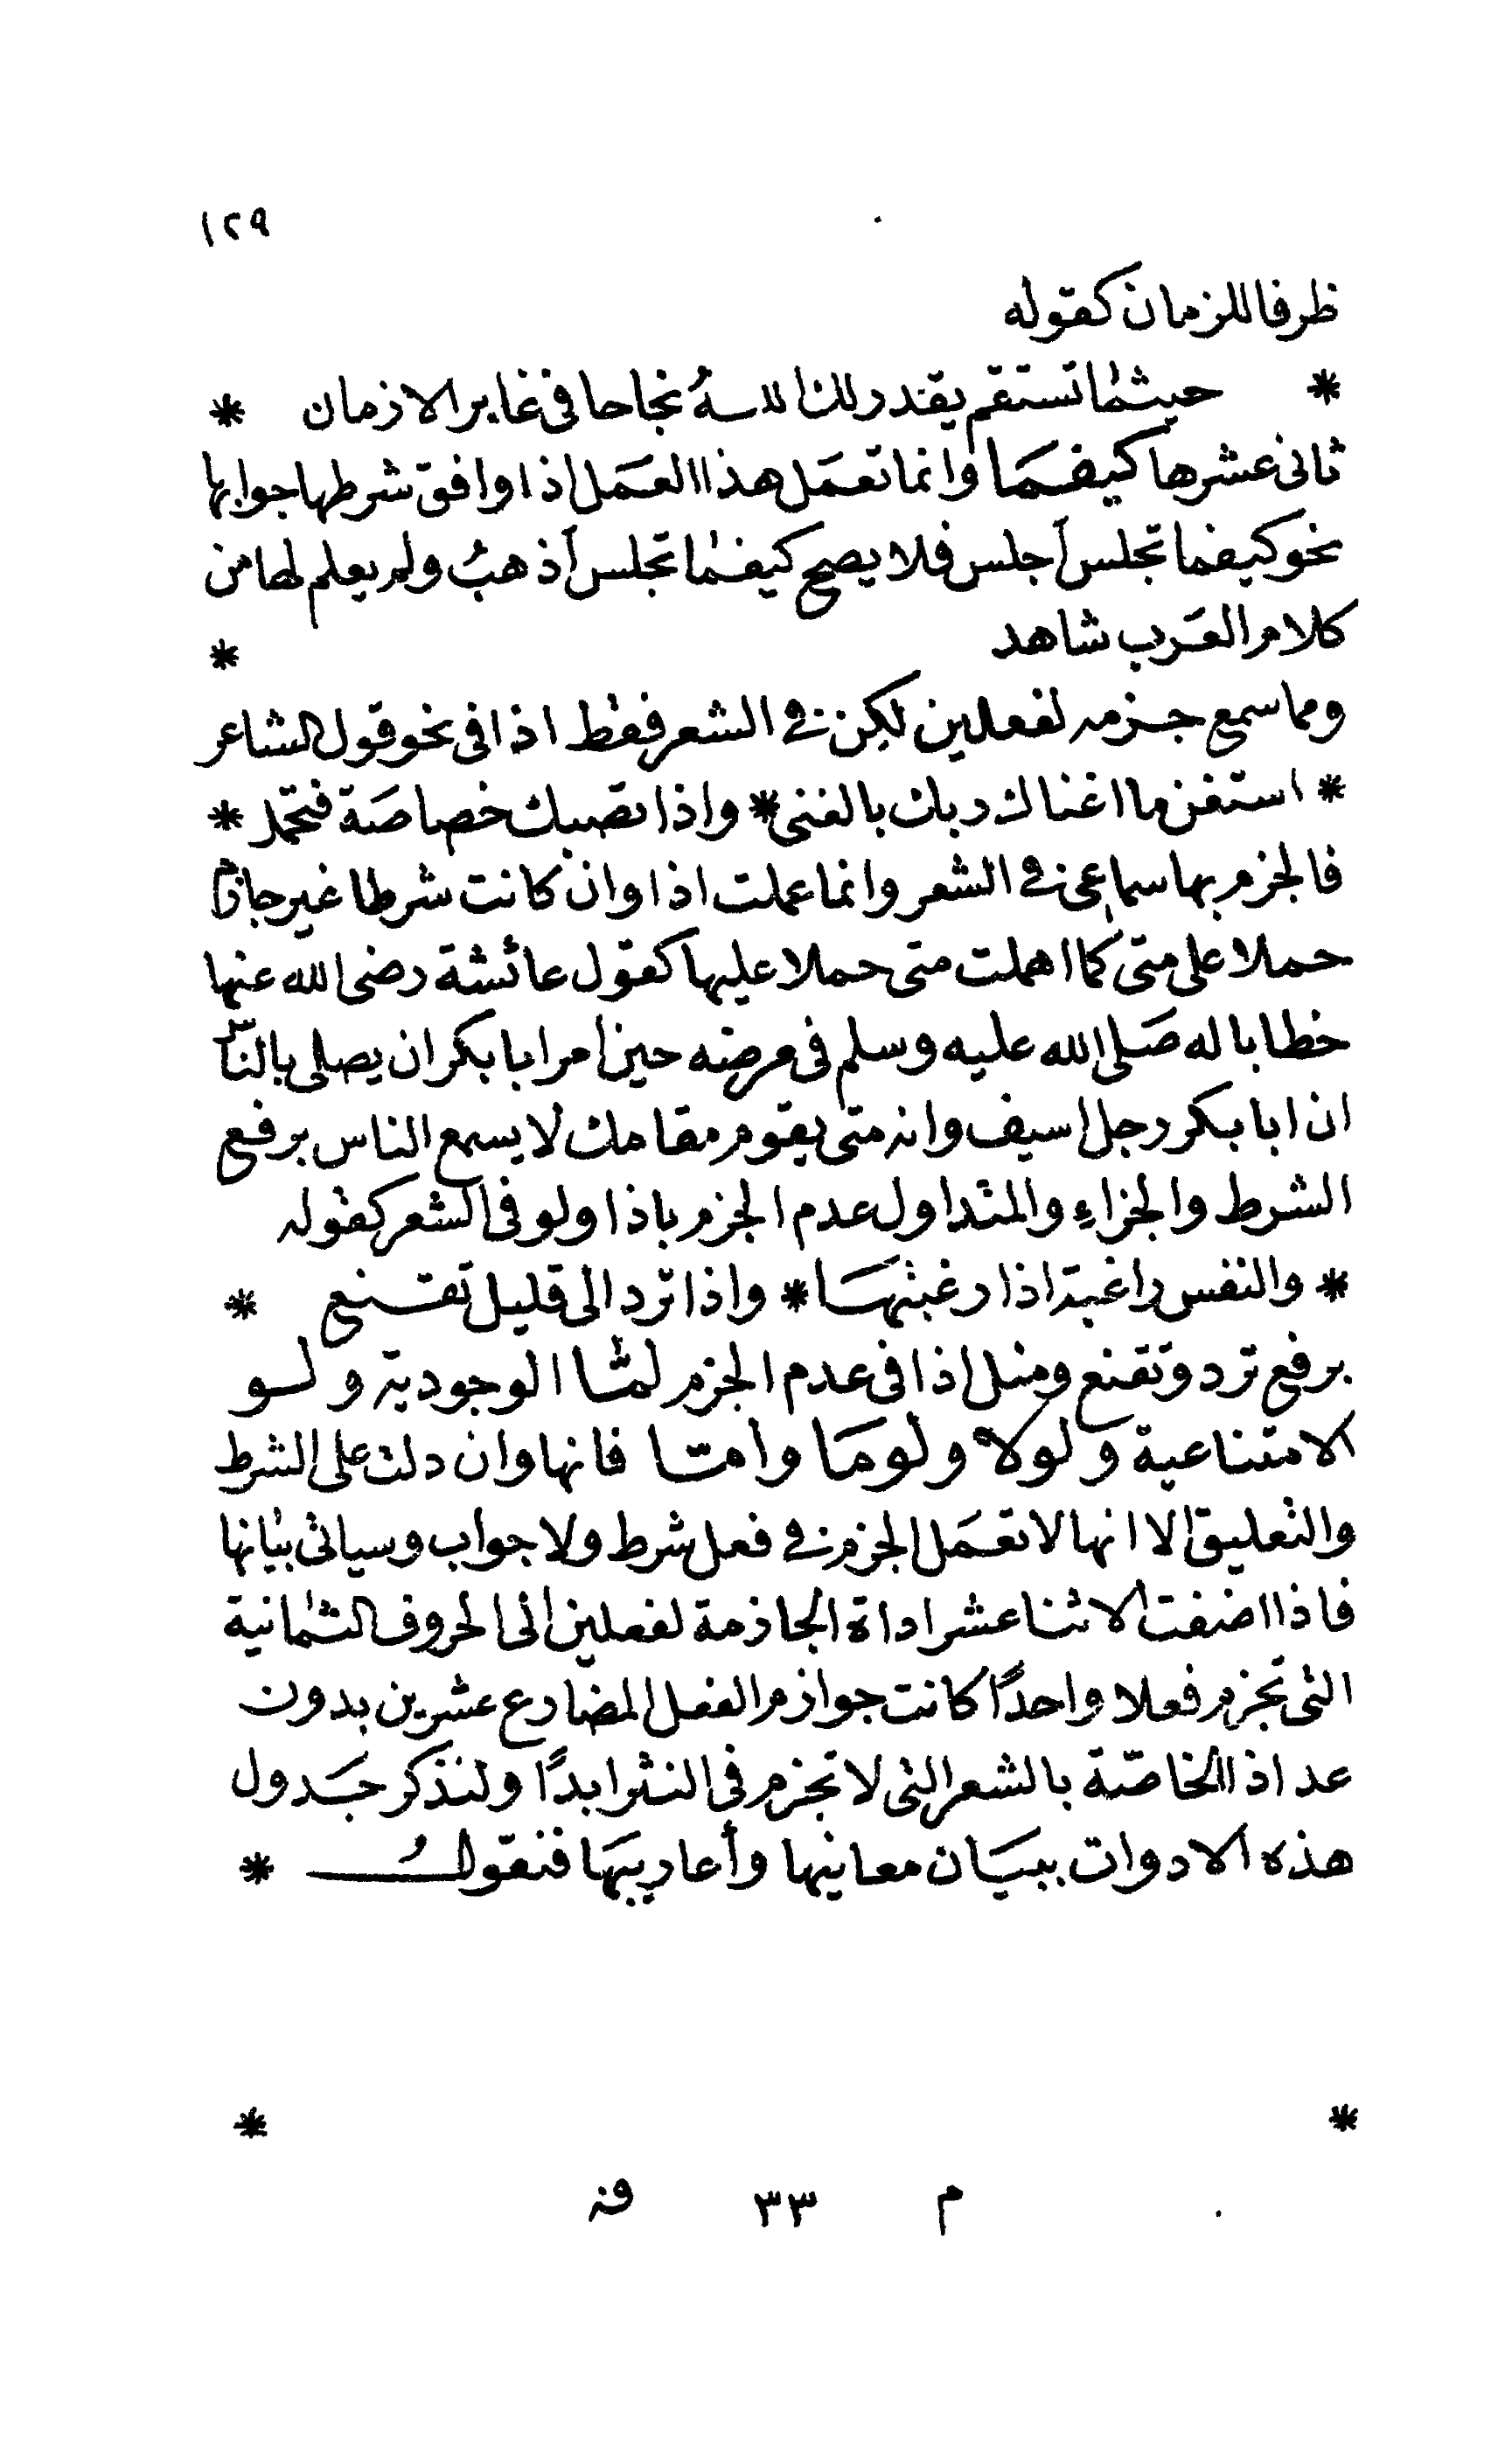 ١٢٩
ظرفا للزمان كقوله
* حيثما تستقم يقدر لك اللـه نجاحا فى غابر الازمان *
ثانى عشرها كيفما وانما تعمل هذا العمل اذا وافق شرطها جوابها
نحو كيفما تجلس أجلس فلا يصح كيفما تجلس أذهبُ ولم يعلم لها من
كلام العرب شاهد *
ومما سمع جزمه لفعلين لكن فى الشعر فقط اذا فى نحو قول الشاعر
* استغن ما اغناك ربك بالغنى * واذا تصبك خصاصة فتحمل *
فالجزم بها سماعى فى الشعر وانما عملت اذا وان كانت شرطا غير جازم
حملا على متى كما اهملت متى حملا عليها كقول عائشة رضى الله عنها
خطابا له صلى الله عليه وسلم فى مرضه حين امر ابا بكر ان يصلى بالناس
ان ابا بكر رجل اسيف وانه متى يقوم مقامك لا يسمع الناس برفع
الشرط والجزاء والمتداول عدم الجزم باذا ولو فى الشعر كقوله
* والنفس راغبة اذا رغبتها * واذا ترد الى قليل تقنع *
برفع ترد وتقنع ومثل اذا فى عدم الجزم لمّا الوجودية ولو
الامتناعية ولولا ولوما وامّا فانها وان دلت على الشرط
والتعليق الا انها لا تعمل الجزم فى فعل شرط ولا جواب وسياتى بيانها
فاذا اضفت الاثنا عشر اداة الجازمة لفعلين الى الحروف الثمانية
التى تجزم فعلا واحدًا كانت جوازم الفعل المضارع عشرين بدون
عد اذا الخاصّة بالشعر التى لا تجزم فى النثر ابدًا ولنذكر جدول
هذه الادوات ببيان معانيها وأعاريبها فنقول *
* *
م ٣٣ فن